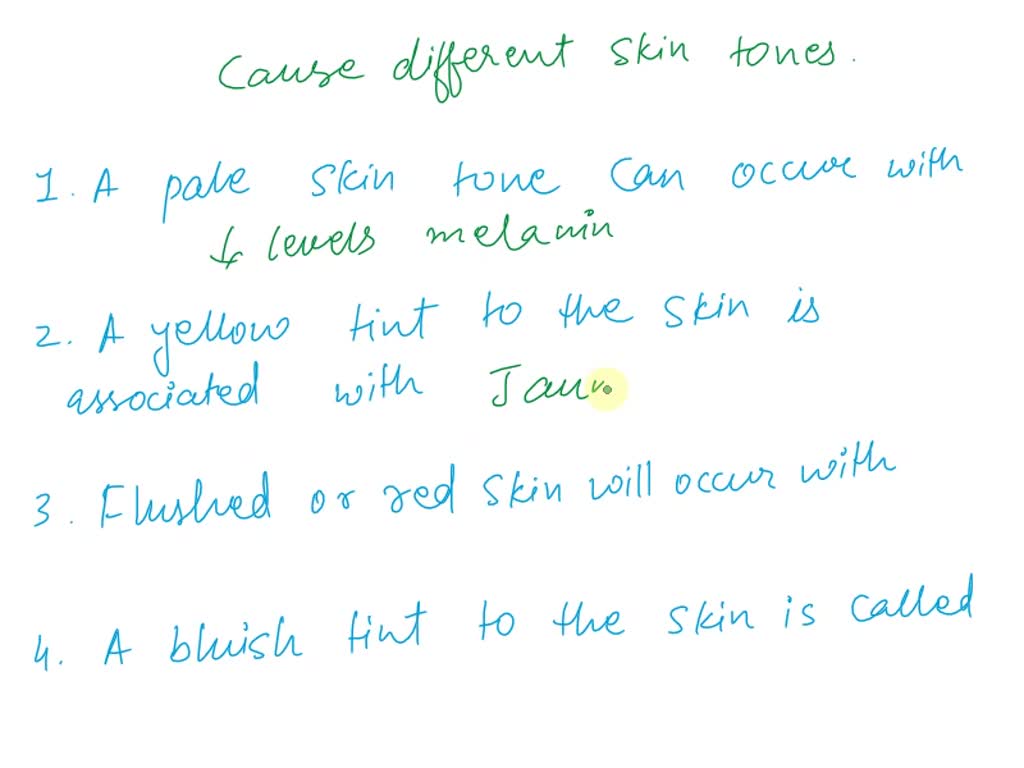 Cause different skin tones.
1. A pale skin tone can occur with
↓ levels melanin
2. A yellow tint to the skin is
associated with Jaun
3. Flushed or red skin will occur with
4. A bluish tint to the skin is called